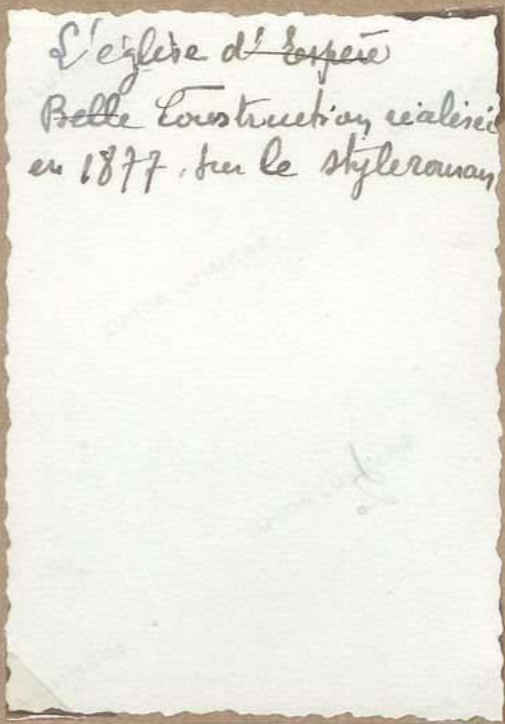 L'église d'Espère
Belle Construction réalisée
en 1877. sur le style roman